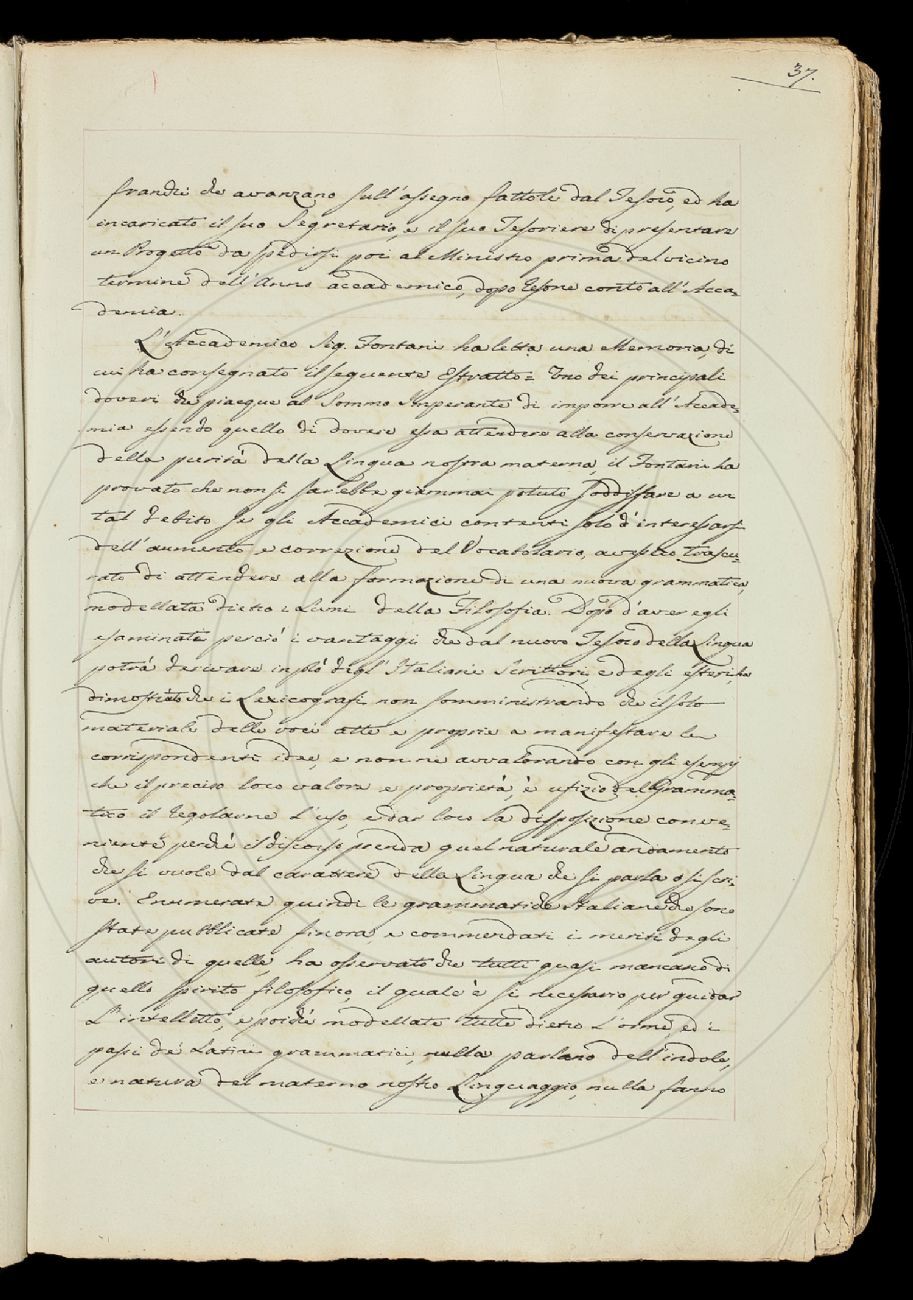 37.
franchi che avanzano sull'assegno fattole dal Tesoro, ed ha
incaricato il suo Segretario, e il suo Tesoriere di presentare
un Progetto da spedirsi poi al Ministro prima del vicino
termine dell'Anno accademico, dopo resone conto all'Acca=
demia.
L'Accademico Sig. Fontani ha letta una Memoria, di
cui ha consegnato il seguente Estratto = Uno dei principali
doveri che piacque al Sommo Imperante di imporre all'Accade=
mia essendo quello di dovere essa attendere alla conservazione
della purità della Lingua nostra materna, il Fontani ha
provato che non si sarebbe giammai potuto soddisfare a un
tal debito se gli Accademici contenti solo d'interessarsi
dell'aumento, e correzione del Vocabolario, avessero trascu=
rato di attendere alla formazione di una nuova grammatica,
modellata dietro i Lumi della Filosofia. Dopo d'aver egli
esaminate perciò i vantaggi che dal nuovo Tesoro della Lingua
potrà derivare in prò degl'Italiani Scrittori, e degli esteri, ha
dimostrato che i Lexicografi non somministrando che il solo
materiale delle voci atte e proprie a manifestare le
corrispondenti idee, e non ne avvalorando con gli esempj
che il preciso loro valore e proprietà, è ufizio del Gramma=
tico il regolarne l'uso, e dar loro la disposizione conve=
niente perchè il discorso prenda quel naturale andamento
che si vuole dal carattere della Lingua che si parla o si scri=
ve. Enumerate quindi le grammatiche italiane che sono
state pubblicate finora, e commendati i meriti degli
autori di quelle, ha osservato che tutti quasi mancano di
quello spirito filosofico, il quale è sì necessario per guidar
l'intelletto, e poichè modellate tutte dietro l'orme, ed i
passi de' Latini grammatici, nulla parlano dell'indole,
e natura del materno nostro Linguaggio, nulla fanno